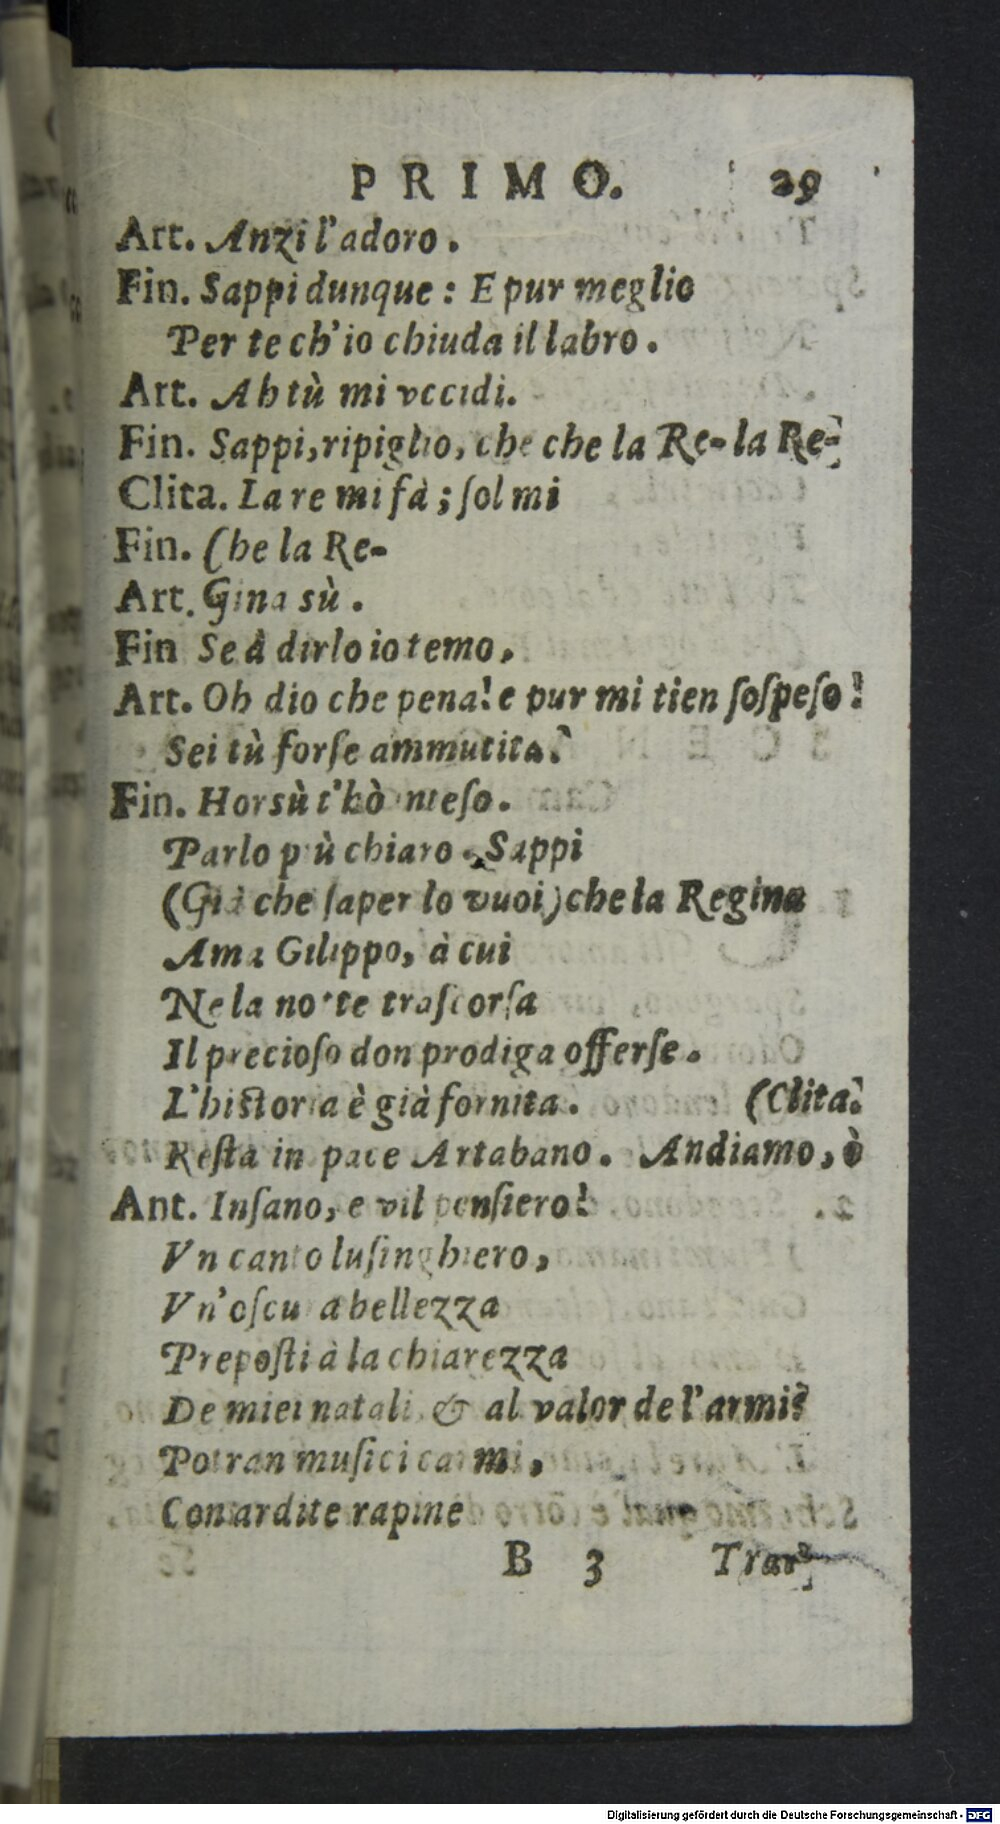 PRIMO. 29
Art. Anzi l'adoro.
Fin. Sappi dunque: E pur meglio
Per te ch'io chiuda il labro.
Art. Ah tù mi vccidi.
Fin. Sappi, ripiglio, che che la Re- la Re-
Clita. La re mi fà; ſol mi
Fin. Che la Re-
Art. Gina sù.
Fin Se à dirlo io temo,
Art. Oh dio che pena! e pur mi tien ſoſpeſo!
Sei tù forſe ammutita?
Fin. Horsù t'hò inteſo.
Parlo più chiaro. Sappi
(Già che ſaper lo vuoi) che la Regina
Ama Gilippo, à cui
Ne la notte traſcorſa
Il precioſo don prodiga offerſe.
L'hiſtoria è già fornita. (Clita?
Reſta in pace Artabano. Andiamo, ò
Ant. Inſano, e vil penſiero!
Vn canto luſinghiero,
Vn'oſcura bellezza
Prepoſti à la chiarezza
De miei natali, & al valor de l'armi?
Potran muſici carmi,
Con ardite rapine
B 3 Trar
Digitalisierung gefördert durch die Deutsche Forschungsgemeinschaft - DFG